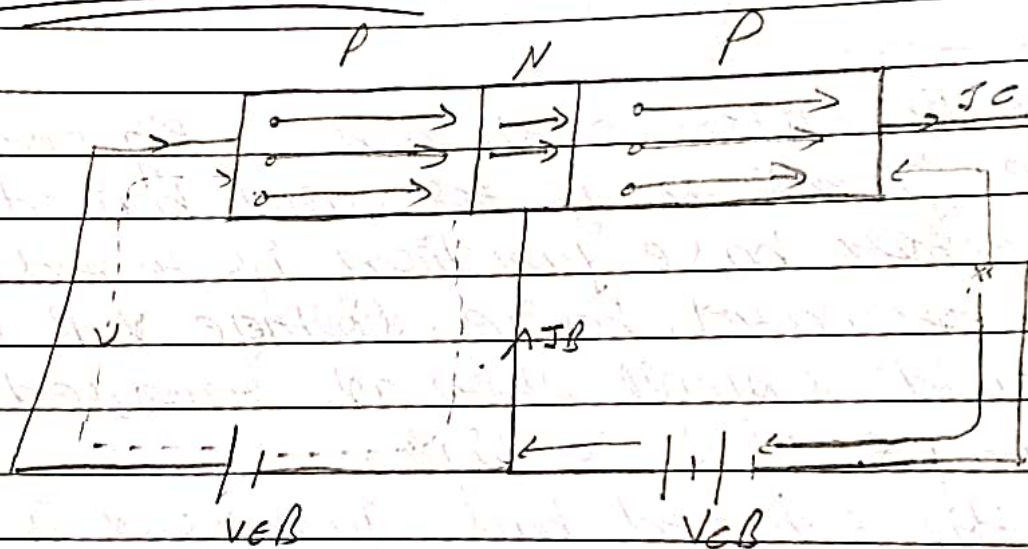 P N P
IC
IB
VEB VCB